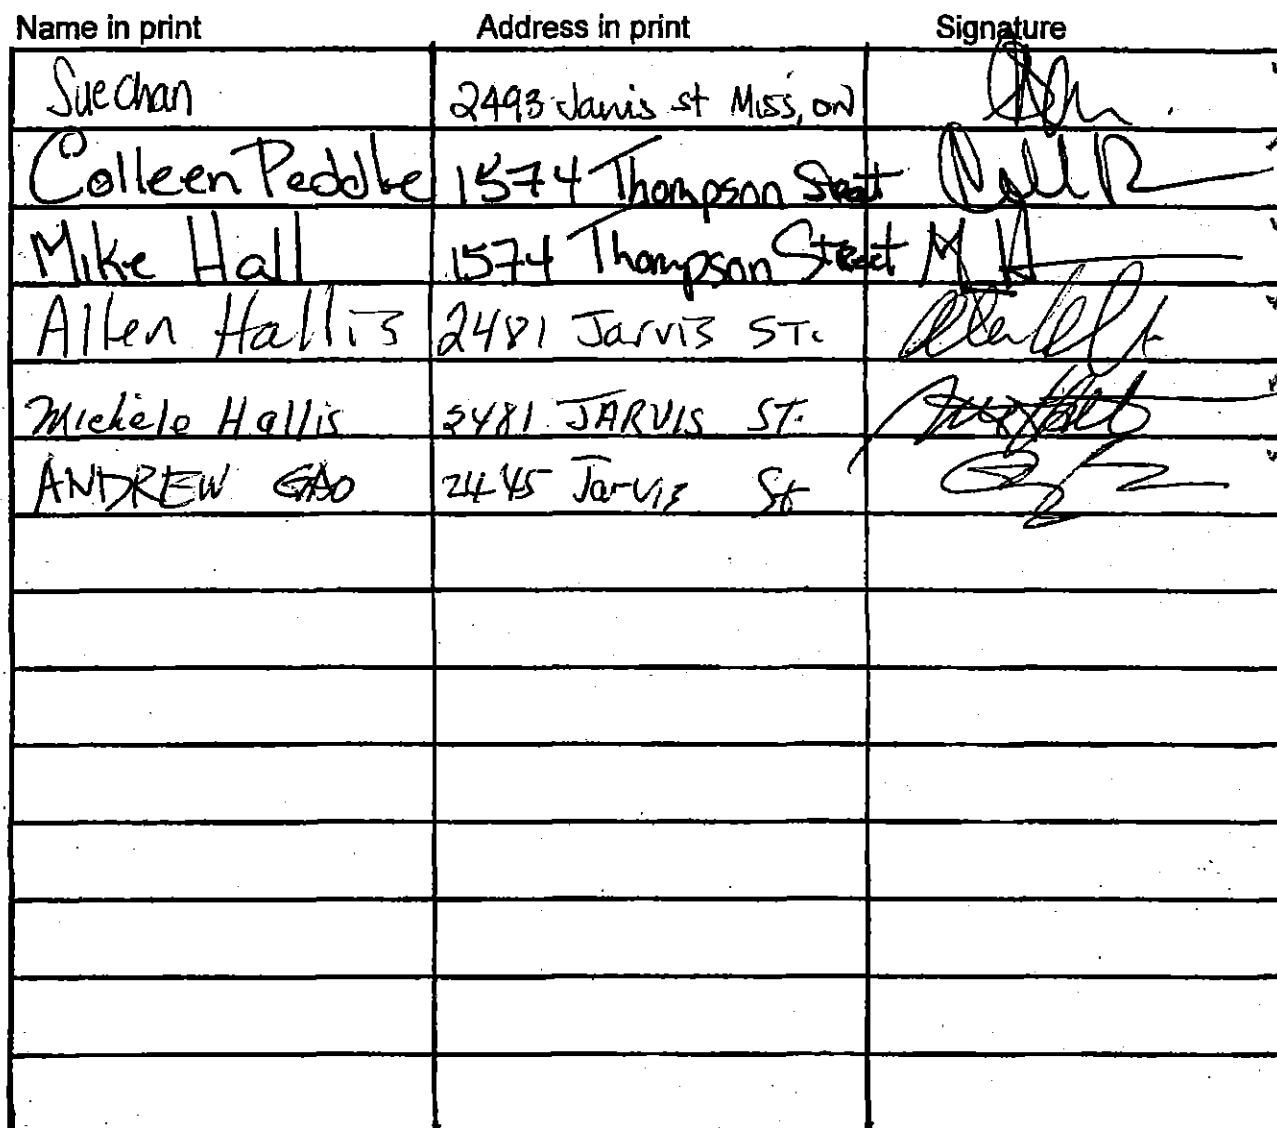 Name in print Address in print Signature
Sue Chan 2493 Jarvis st Miss, ON
Colleen Peddle 1574 Thompson Street
Mike Hall 1574 Thompson Street M H
Allen Hallis 2481 Jarvis ST.
Michele Hallis 2481 JARVIS ST.
ANDREW GAO 2445 Jarvis St